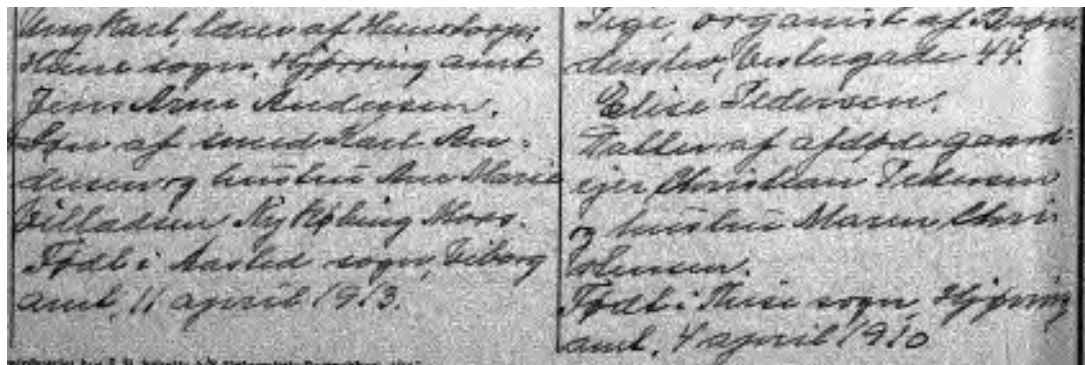 Ungkarl, lærer af Hunetorp,
Hune sogn, Hjørring amt
Jens Arne Andersen.
Søn af smed Karl An-
dersen og hustru Ane Marie
Villadsen Nykøbing Mors.
Født i Aasted sogn, Viborg
amt, 11 april 1913.
Pige, organist af Brøn
derslev, Vestergade 44.
Elise Pedersen.
Datter af afdøde gaard-
ejer Christian Pedersen
og hustru Maren Chri-
Født i Thise sogn, Hjørring
amt, 4 april 1910